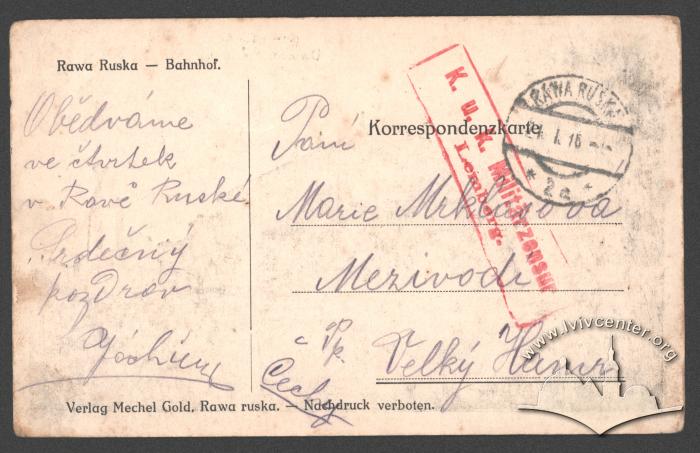 Rawa Ruska — Bahnhof.
Korrespondenzkarte
K. u. K. Militärzensur
Lemberg.
RAWA RUSKA
Obědváme
ve čtvrtek
v Ravě Ruské
Srdečný
pozdrav
Paní
Marie
Mezivodí
č p.
Velký
Čechy
Verlag Mechel Gold, Rawa ruska. — Nachdruck verboten.
www.lvivcenter.org